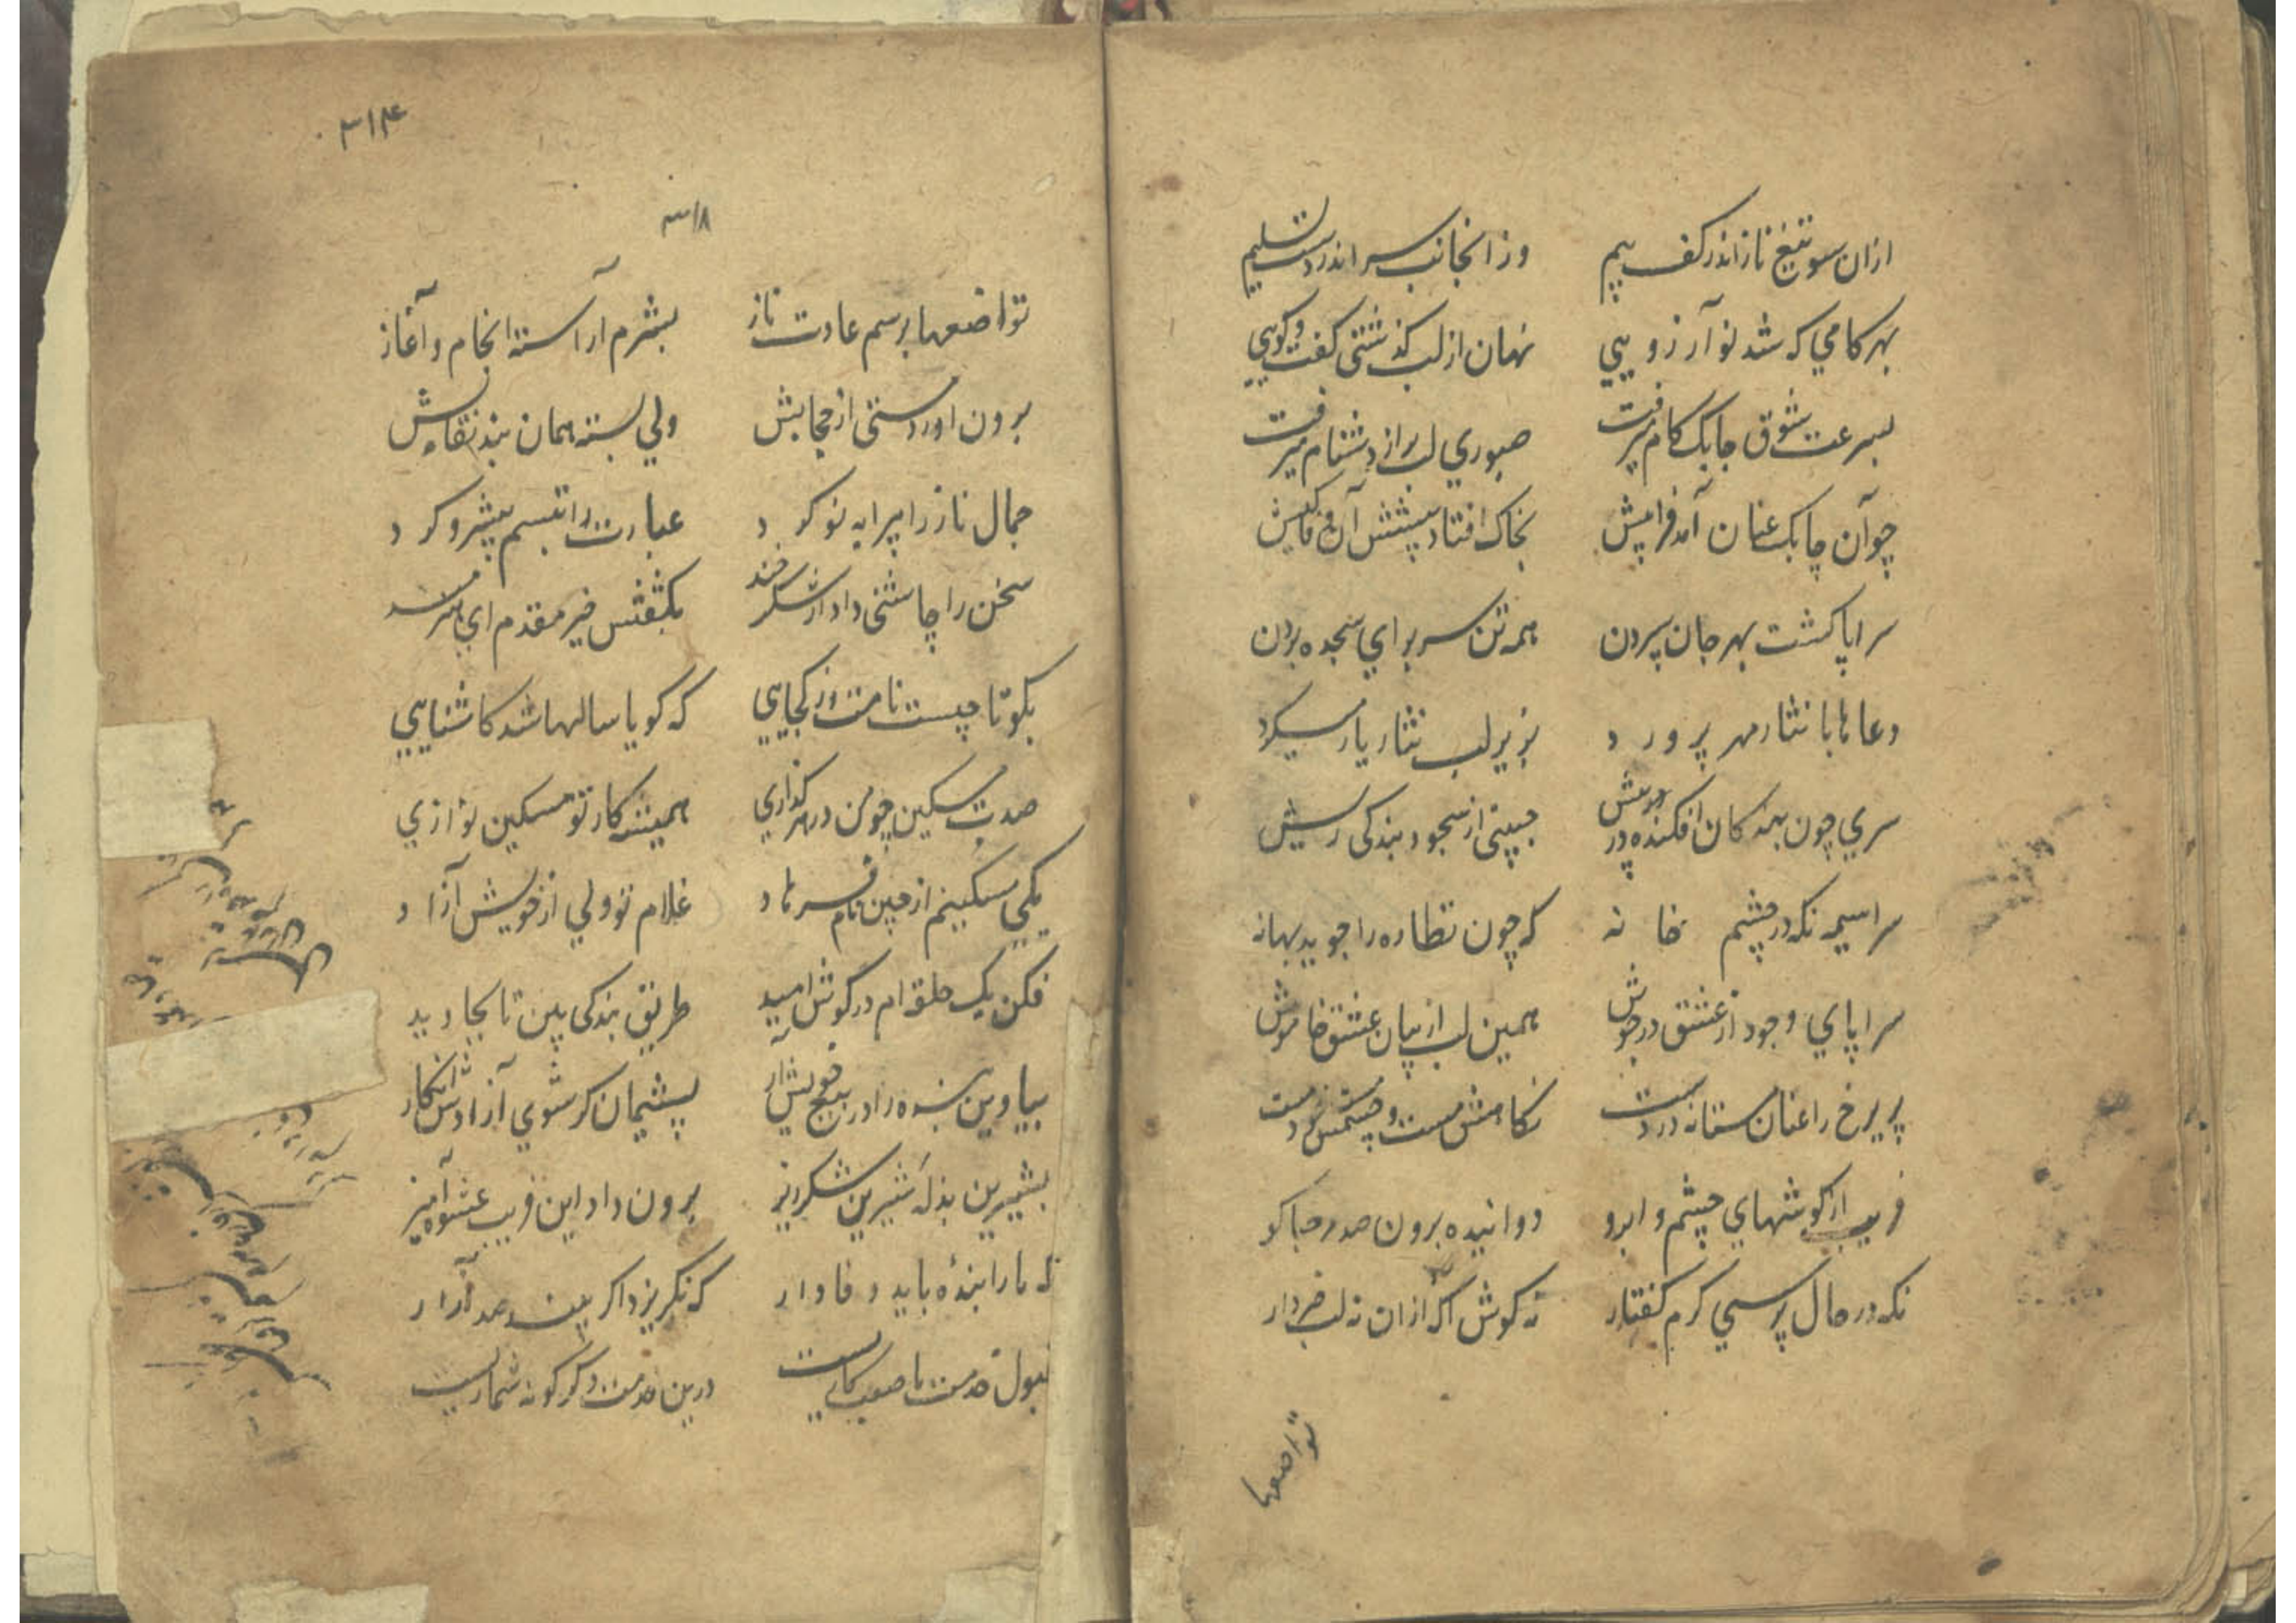 ازان سو تیغ ناز اندر کف بیم وز انجانب سر اندر دست تسلیم
بهر کامي که شد نو آرزو یی نهان از لب گذشتی گفت و گویی
بسرعت شوق چابک گام میرفت صبوري لب پر از دشنام میرفت
چو آن چابک عنان آمد فرا پیش بخاک افتاد پیشش آن وفا کیش
سراپا گشت بهر جان سپردن همه تن سر براي سجده بردن
دعاها با نثار مهر پرورد بزیر لب نثار یار میکرد
سري چون بندکان افکنده در پیش جبینی از سجود بندکی ریش
سراسیمه نکه در چشم خانه که چون نظاره را جوید بهانه
سراپاي وجود از عشق در جوش همین لب از بیان عشق خاموش
پریرخ را عنان مستانه در دست نکاهش مست و چشمش مست
فریب از کوشهاي چشم و ابرو دوانیده برون صد مرحبا کو
نکه در حال پرسي کرم کفتار نه کوش اکه ازان نه لب خبردار
تواضعها
۳۱۴
۳۱۸
تواضعها برسم عادت ناز بشرم آراسته انجام و آغاز
برون اورد مستی از حجابش ولي بسته همان بند نقابش
جمال ناز را پیرایه نو کرد عبارت را تبسم پیشرو کرد
سخن را چاشنی داد از شکرخند بکفتش خیر مقدم اي هنرمند
بکو تا چیست نامت وز کجایی که کویا سالها شد کاشنایی
صدت مسکین چو من در هر کذاري همیشه کار تو مسکین نوازي
یکي مسکینم از چین نام فرهاد غلام تو ولي از خویش آزاد
فکن یک حلقه ام در کوش امید طریق بندکی بین تا بجاوید
بیا وین بنده را در بیع خویش آر پشیمان کر شوي آزادش انکار
بشیرین بذله شیرین شکرریز برون داد این فریب عشوه آمیز
که ما را بندهٔ باید وفادار که نکریزد اکر بیند صد آزار
قبول خدمت ما صعب کاریست درین خدمت دکر کونه شماریست